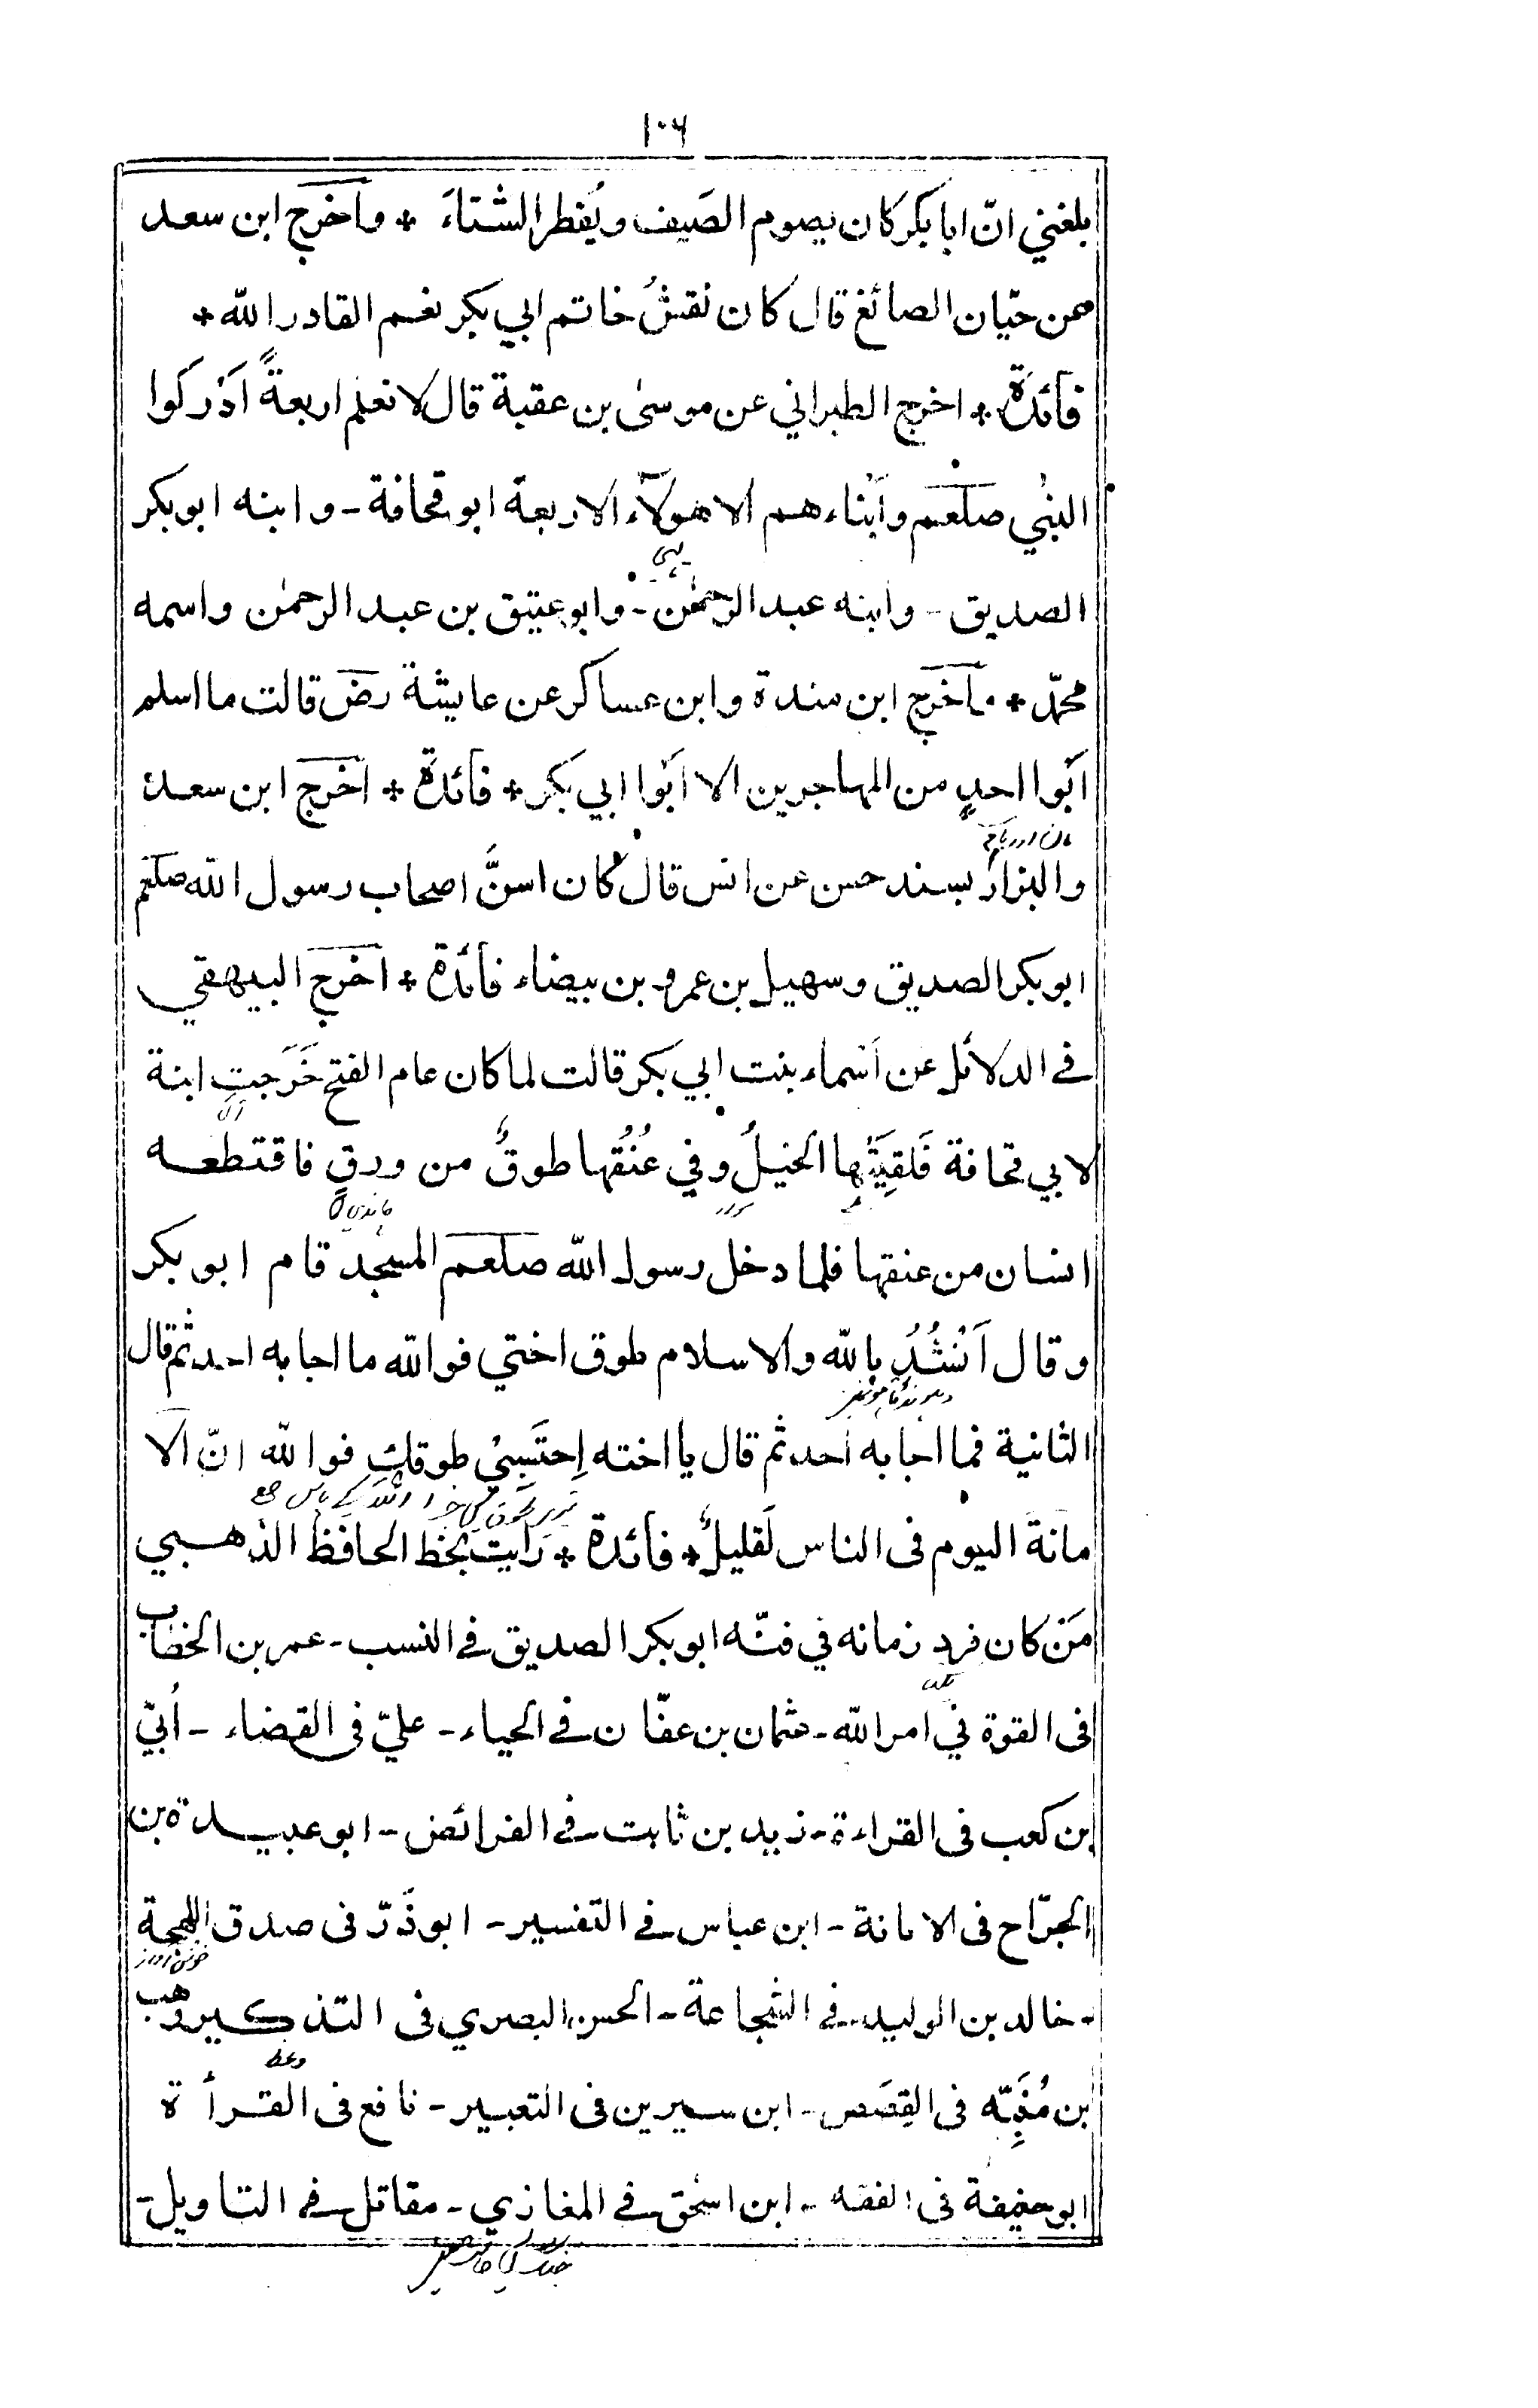 ١٠٦
بلغني انّ ابا بكر كان يصوم الصَيف ويُفطر الشتاءَ * واَخرج ابن سعد
عن حيّان الصائغ قال كان نقشُ خاتم ابي بكر نعم القادر الله *
فائدة * اخرج الطبراني عن موسىٰ بن عقبة قال لا نعلم اربعةً اَدْركوا
النبي صلعم وأبناءهم الا هولاء الاربعة ابو قحافة - وابنه ابو بكر
الصديق - وابنه عبد الرحمٰن - وابو عتيق بن عبد الرحمٰن واسمه
محمّد * واَخرج ابن مندة وابن عساكر عن عايشة رض قالت ما اسلم
اَبَوا احدٍ من المهاجرين الا اَبَوا ابي بكر * فائدة * اَخرج ابن سعد
ماں اور باپ
والبزار بسند حسن عن انس قال كان اسنَّ اصحاب رسول الله صلعم
ابو بكر الصديق وسهيل بن عمرو بن بيضاء فائدة * اَخرج البيهقي
في الدلائل عن اَسْماء بنت ابي بكر قالت لما كان عام الفتح خَرَجتِ ابنة
لابي قحافة فَلَقِيَتْها الخيلُ وفي عُنُقها طوقٌ من ورقٍ فاقتطعه
انسان من عنقها فلما دخل رسول الله صلعم المسجد قام ابو بكر
وقال اَنْشُدُ بالله والاسلام طوق اختي فوالله ما اجابه احد ثم قال
الثانية فما اجابه احد ثم قال يا اخته اِحتَسِبِيْ طوقك فوالله انّ الا
مانة اليوم فى الناس لَقليلٌ * فائدة * رَايت بخط الحافظ الذهبي
مَنْ كان فرد زمانه في فنّه ابو بكر الصديق في النسب - عمر بن الخطاب
فى القوة في امر الله - عثمان بن عفّان في الحياء - عليّ فى القضاء - اُبيّ
بن كعب فى القراءة - زيد بن ثابت في الفرائض - ابو عبيدة بن
الجرّاح فى الامانة - ابن عباس في التفسير - ابو ذَرّ فى صدق اللهجة
- خالد بن الوليد في الشجاعة - الحسن البصري فى التذكير وهب
وعظ
بن مُنَبِّه فى القِصَص - ابن سيرين فى التعبير - نافع فى القرأة
ابو حنيفة فى الفقه - ابن اسحٰق في المغازي - مقاتل في التاويل -